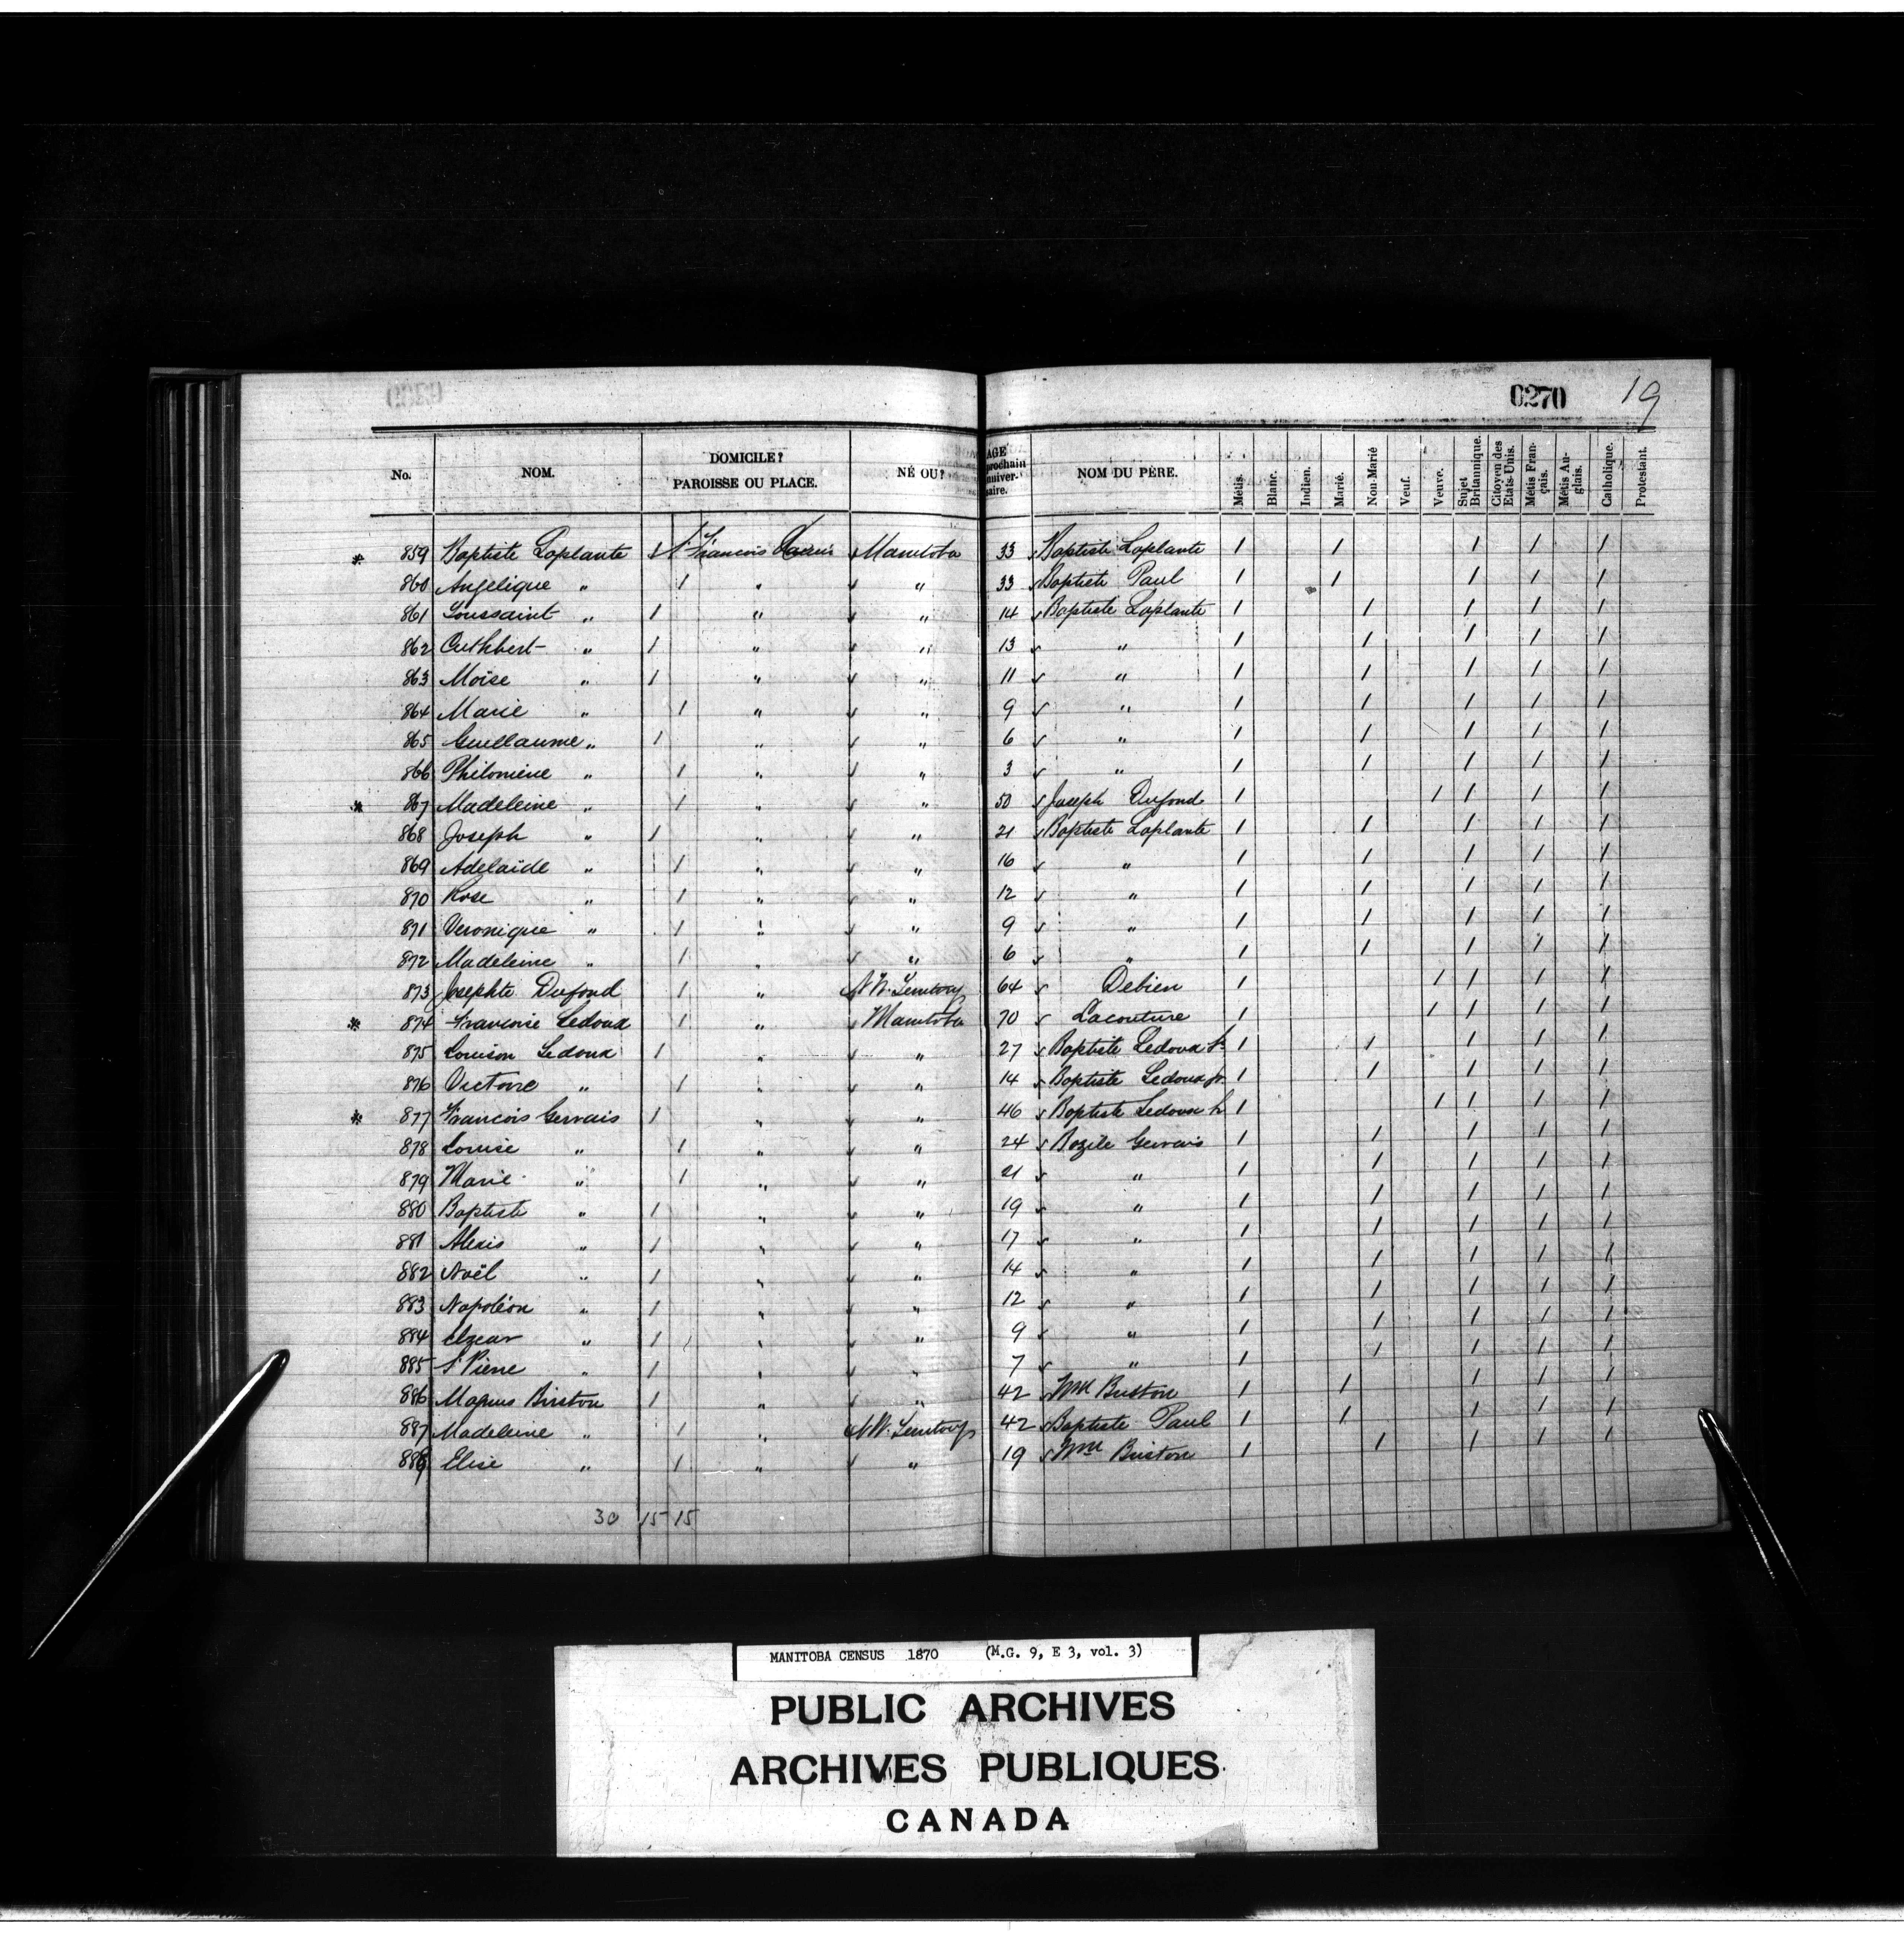 0270 19
No. NOM. DOMICILE? PAROISSE OU PLACE. NÉ OU? AGE prochain anniver-saire. NOM DU PÈRE. Métis. Blanc. Indien. Marié. Non-Marié Veuf. Veuve. Sujet Britannique. Citoyen des Etats-Unis. Métis Fran-çais. Métis An-glais. Catholique. Protestant.
* 859 Baptiste Laplante 1 St François Xavier Manitoba 33 Baptiste Laplante 1 1 1 1 1
860 Angelique " 1 " " 33 Baptiste Paul 1 1 1 1 1
861 Toussaint " 1 " " 14 Baptiste Laplante 1 1 1 1 1
862 Cuthbert " 1 " " 13 " 1 1 1 1 1
863 Moïse " 1 " " 11 " 1 1 1 1 1
864 Marie " 1 " " 9 " 1 1 1 1 1
865 Guillaume " 1 " " 6 " 1 1 1 1 1
866 Philomène " 1 " " 3 " 1 1 1 1 1
* 867 Madeleine " 1 " " 50 Joseph Dufond 1 1 1 1 1
868 Joseph " 1 " " 21 Baptiste Laplante 1 1 1 1 1
869 Adelaïde " 1 " " 16 " 1 1 1 1 1
870 Rose " 1 " " 12 " 1 1 1 1 1
871 Veronique " 1 " " 9 " 1 1 1 1 1
872 Madeleine " 1 " " 6 " 1 1 1 1 1
873 Josephte Dufond 1 " N.W. Territory 64 Debien 1 1 1 1 1
* 874 Francoise Ledoux 1 " Manitoba 70 Lacouture 1 1 1 1 1
875 Louison Ledoux 1 " " 27 Baptiste Ledoux Sr 1 1 1 1 1
876 Victoire " 1 " " 14 Baptiste Ledoux jr. 1 1 1 1 1
* 877 Francois Gervais 1 " " 46 Baptiste Ledoux 1 1 1 1 1
878 Louise " 1 " " 24 Bazile Gervais 1 1 1 1 1
879 Marie " 1 " " 21 " 1 1 1 1 1
880 Baptiste " 1 " " 19 " 1 1 1 1 1
881 Alexis " 1 " " 17 " 1 1 1 1 1
882 Noël " 1 " " 14 " 1 1 1 1 1
883 Napoléon " 1 " " 12 " 1 1 1 1 1
884 " 1 " " 9 " 1 1 1 1 1
885 St Pierre " 1 " " 7 " 1 1 1 1 1
886 Magnus Birston 1 " " 42 Wm Birston 1 1 1 1 1
887 Madeleine " 1 " N.W. Territory 42 Baptiste Paul 1 1 1 1 1
888 Elise " 1 " " 19 Wm Birston 1 1 1 1 1
30 15 15
MANITOBA CENSUS 1870 (M.G. 9, E 3, vol. 3)
PUBLIC ARCHIVES
ARCHIVES PUBLIQUES
CANADA